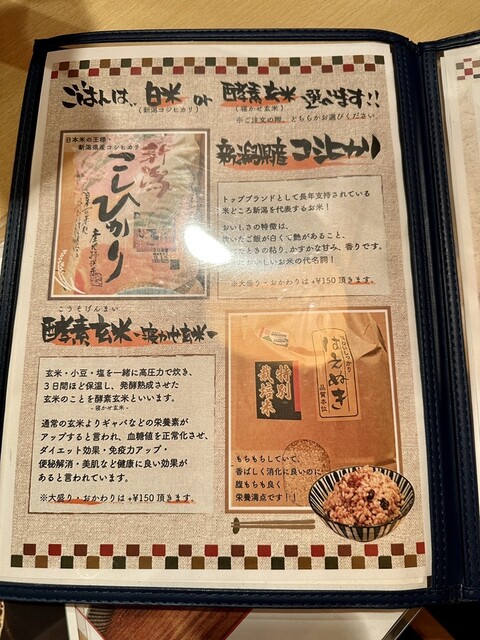 ごはんは、白米 or 酵素玄米 選べます!!
(新潟コシヒカリ) (寝かせ玄米)
※ご注文の際、どちらかお選びください
日本米の王様・
新潟県産コシヒカリ
新潟
こしひかり
新潟県産 コシヒカリ
トップブランドとして長年支持されている
米どころ新潟を代表するお米!
おいしさの特徴は、
炊いたご飯が白くて艶があること、
たときの粘り、かすかな甘み、香りです。
においしいお米の代名詞!
※大盛り・おかわりは+¥150頂きます。
こうそげんまい
酵素玄米 -寝かせ玄米-
玄米・小豆・塩を一緒に高圧力で炊き、
3日間ほど保温し、発酵熟成させた
玄米のことを酵素玄米といいます。
- 寝かせ玄米 -
通常の玄米よりギャバなどの栄養素が
アップすると言われ、血糖値を正常化させ、
ダイエット効果・免疫力アップ・
便秘解消・美肌など健康に良い効果が
あると言われています。
※大盛り・おかわりは+¥150頂きます。
特別
栽培米
はえぬき
もちもちしていて、
香ばしく消化に良いのに
腹もちも良く
栄養満点です!!